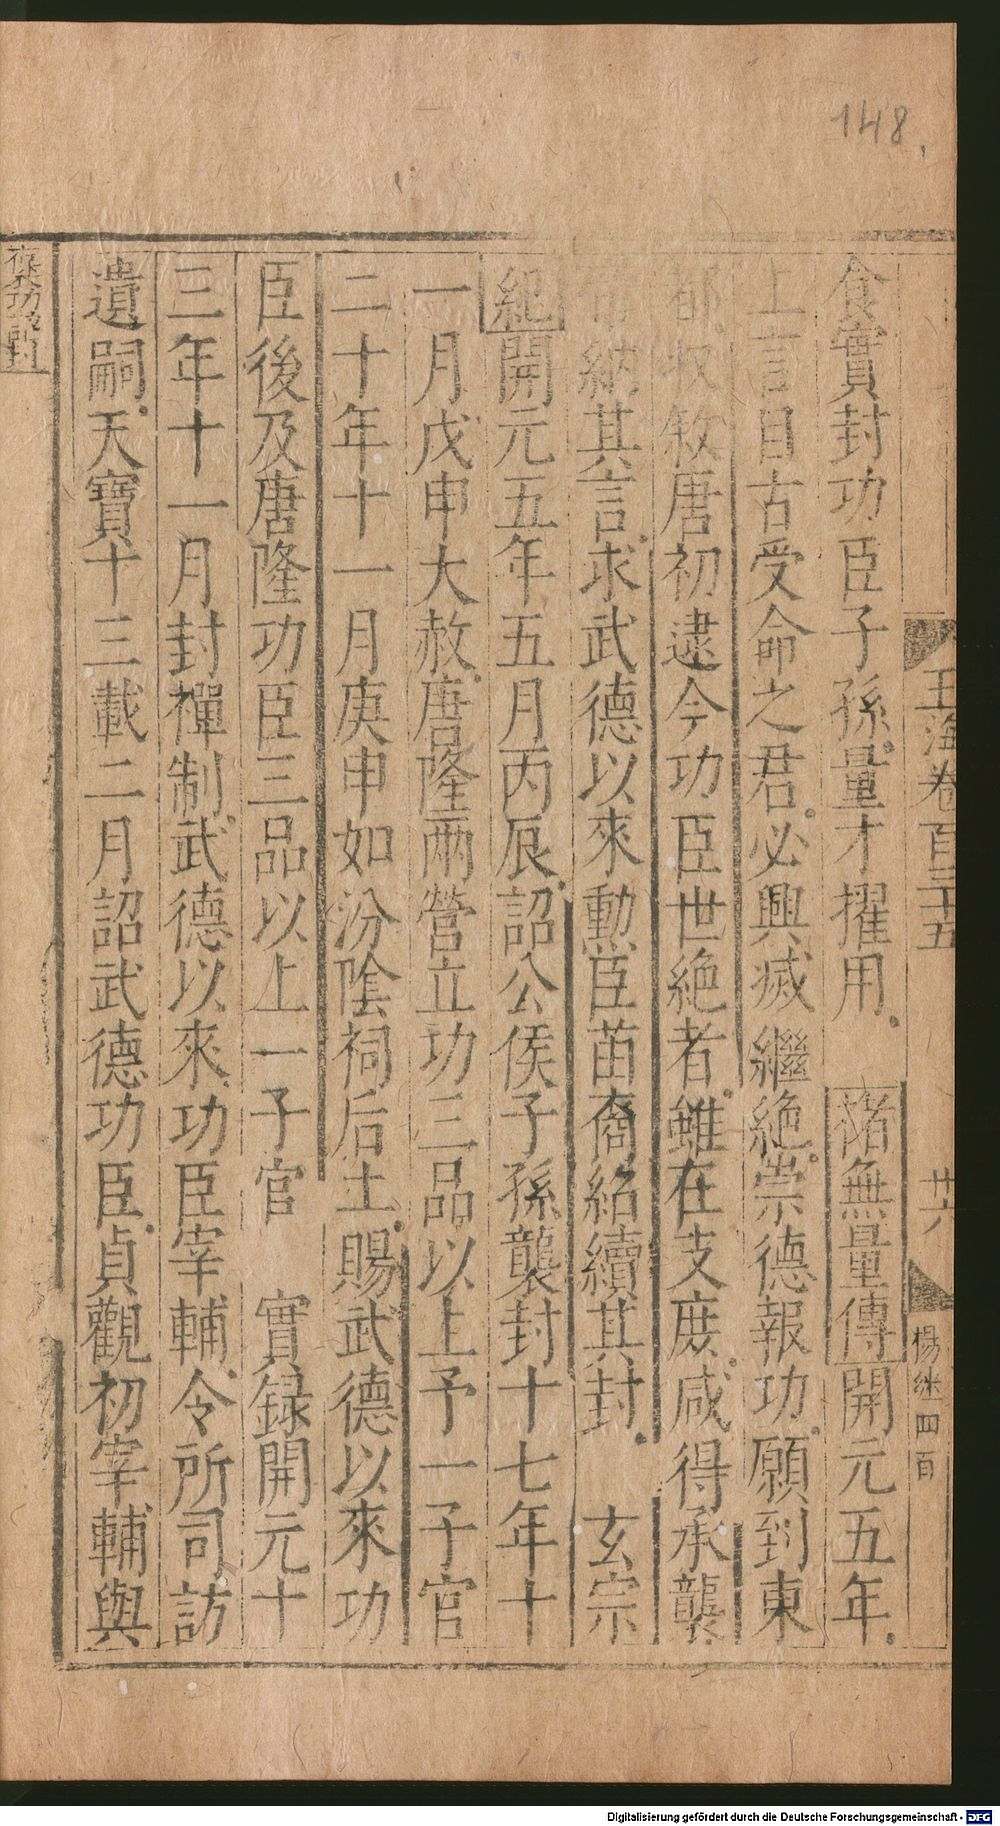 148
玉海卷百三十五
廿六
楊 四百
食實封功臣子孫量才擢用 褚無量傳開元五年
上言自古受命之君必興滅繼絶崇德報功願到東
都收敘唐初逮今功臣世絶者雖在支庶咸得承襲
帝納其言求武德以來勳臣苗裔紹續其封 玄宗
紀開元五年五月丙辰詔公侯子孫襲封十七年十
一月戊申大赦唐隆兩營立功三品以上予一子官
二十年十一月庚申如汾陰祠后土賜武德以來功
臣後及唐隆功臣三品以上一子官 實録開元十
三年十一月封禪制武德以來功臣宰輔令所司訪
遺嗣天寶十三載二月詔武德功臣貞觀初宰輔與
Digitalisierung gefördert durch die Deutsche Forschungsgemeinschaft - DFG